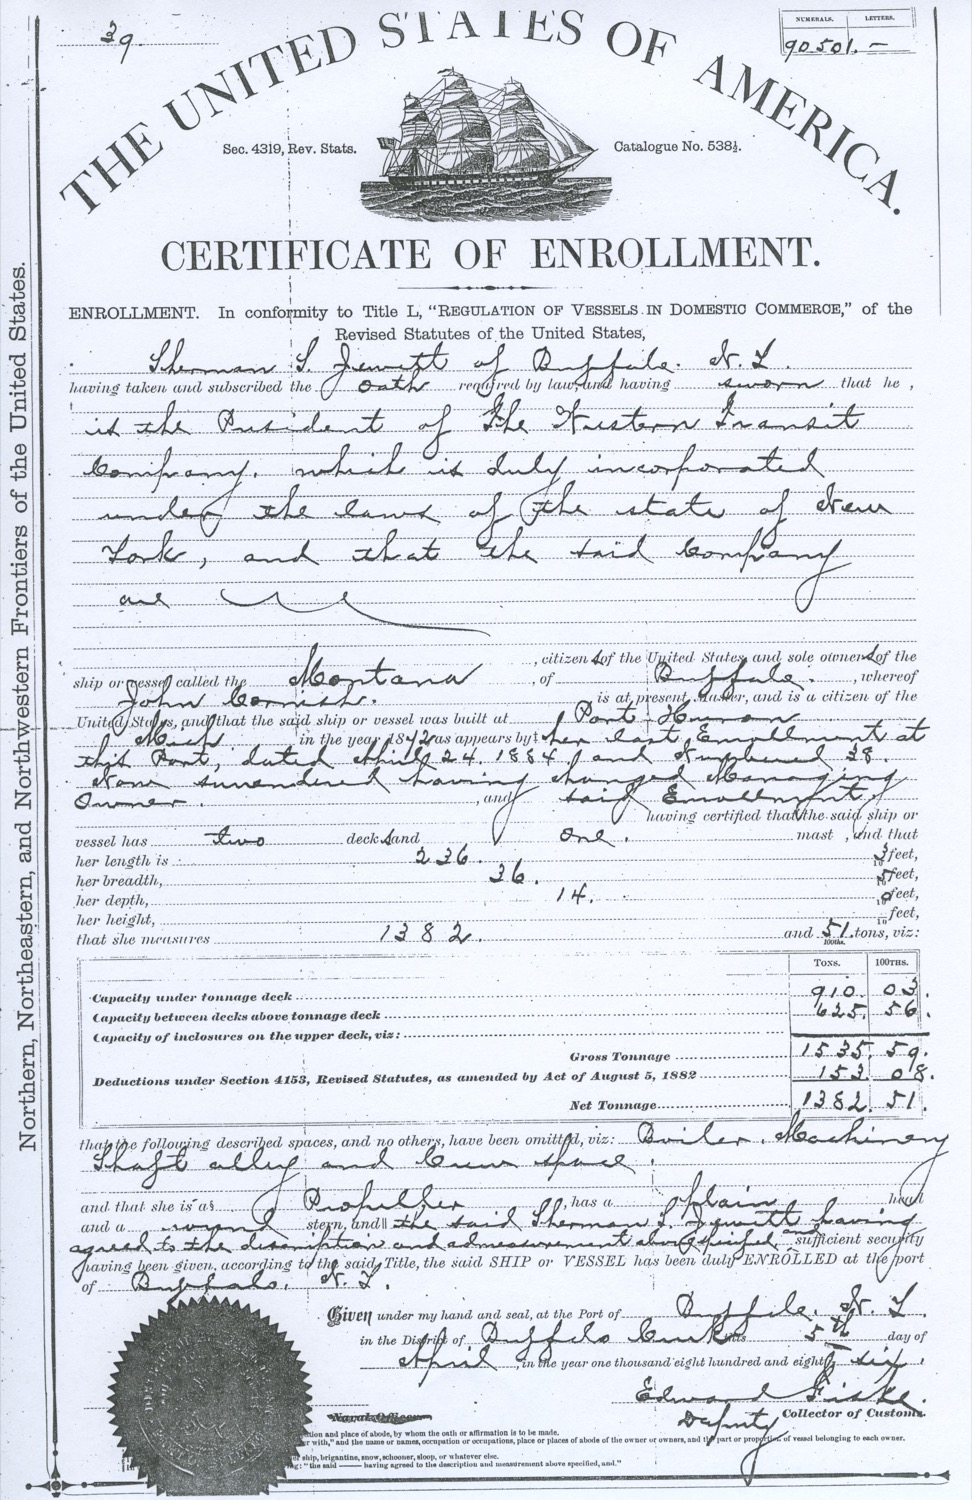 39.
NUMERALS. LETTERS.
90501. —
THE UNITED STATES OF AMERICA.
Sec. 4319, Rev. Stats.
Catalogue No. 538½.
CERTIFICATE OF ENROLLMENT.
Northern, Northeastern, and Northwestern Frontiers of the United States.
ENROLLMENT. In conformity to Title L, “REGULATION OF VESSELS IN DOMESTIC COMMERCE,” of the
Revised Statutes of the United States,
Sherman S. Jewett of Buffalo. N. Y.
having taken and subscribed the oath required by law, and having sworn that he,
is the President of The Western Transit
Company, which is duly incorporated
under the laws of the state of New
York, and that the said Company
are
, citizens of the United States, and sole owners of the
ship or vessel called the Montana, of Buffalo., whereof
John Cornish. is at present master, and is a citizen of the
United States, and that the said ship or vessel was built at Port Huron
Mich in the year 1872 as appears by‡ her last Enrollment at
this Port, dated April 24. 1884 and Numbered 38.
Now surrendered having changed Managing
Owner., and said Enrollment,
having certified that the said ship or
vessel has two decks and one. mast, and that
her length is 236. 3/10 feet,
her breadth, 36. 5/10 feet,
her depth, 14. 0/10 feet,
her height, /10 feet,
that she measures 1382. and 51/100ths. tons, viz:
TONS. 100THS.
Capacity under tonnage deck 910 03.
Capacity between decks above tonnage deck 625. 56.
Capacity of inclosures on the upper deck, viz:
Gross Tonnage 1535. 59.
Deductions under Section 4153, Revised Statutes, as amended by Act of August 5, 1882 153 08.
Net Tonnage 1382. 51.
that the following described spaces, and no others, have been omitted, viz: Boiler. Machinery
Shaft alley and Crew space.
and that she is a§ Propeller, has a plain head
and a round stern, and‖ the said Sherman S. Jewett having
agreed to the description and admeasurement above specified, and sufficient security
having been given, according to the said Title, the said SHIP or VESSEL has been duly ENROLLED at the port
of Buffalo. N. Y.
Given under my hand and seal, at the Port of Buffalo. N. Y
in the District of Buffalo Creek this 5th day of
April, in the year one thousand eight hundred and eighty six.
Edward Fiske.
Deputy Collector of Customs.
Naval Officer.
tion and place of abode, by whom the oath or affirmation is to be made.
r with," and the name or names, occupation or occupations, place or places of abode of the owner or owners, and the part or proportion of vessel belonging to each owner.
r ship, brigantine, snow, schooner, sloop, or whatever else.
g: "the said —— having agreed to the description and measurement above specified, and."